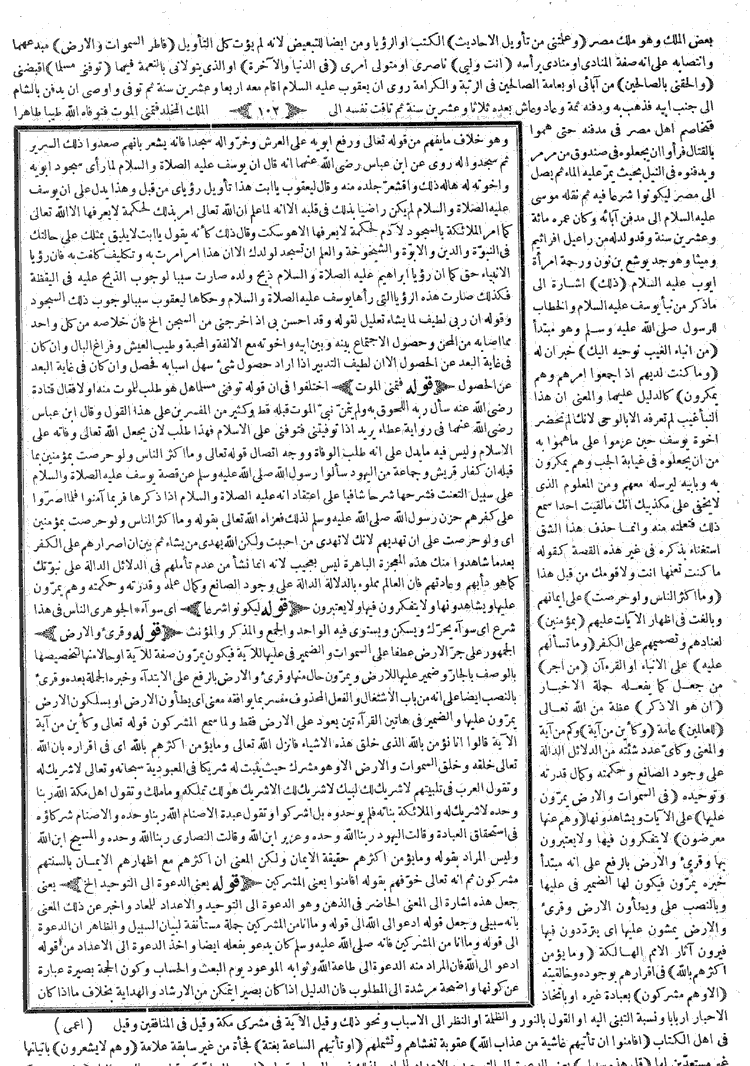 بعض الملك وهو ملك مصر (وعلمتنى من تأويل الاحاديث) الكتب او الرؤيا ومن ايضا للتبعيض لانه لم يؤت كل التأويل (فاطر السموات والارض) مبدعهما
وانتصابه على انه صفة المنادى او منادى برأسه (انت وليى) ناصرى او متولى امرى (فى الدنيا والآخرة) او الذى يتولانى بالنعمة فيهما (توفنى مسلما) اقبضنى
(والحقنى بالصالحين) من آبائى او بعامة الصالحين فى الرتبة والكرامة روى ان يعقوب عليه السلام اقام معه اربعا وعشرين سنة ثم توفى واوصى ان يدفن بالشام
الى جنب ابيه فذهب به ودفنه ثمة وعاد وعاش بعده ثلاثا وعشرين سنة ثم تاقت نفسه الى ﴿١٠٢﴾ الملك المخلد فتمنى الموت فتوفاه الله طيبا طاهرا
فتخاصم اهل مصر فى مدفنه حتى هموا
بالقتال فرأوا ان يجعلوه فى صندوق من مرمر
ويدفنوه فى النيل بحيث يمر عليه الماء ثم يصل
الى مصر ليكونوا شرعا فيه ثم نقله موسى
عليه السلام الى مدفن آبائه وكان عمره مائة
وعشرين سنة وقد ولد له من راعيل افرائيم
وميشا وهو جد يوشع بن نون ورحمة امرأة
ايوب عليه السلام (ذلك) اشارة الى
ماذكر من نبأ يوسف عليه السلام والخطاب
للرسول صلى الله عليه وسلم وهو مبتدأ
(من انباء الغيب نوحيه اليك) خبران له
(وما كنت لديهم اذ اجمعوا امرهم وهم
يمكرون) كالدليل عليهما والمعنى ان هذا
النبأ غيب لم تعرفه الابالوحى لانك لم تحضر
اخوة يوسف حين عزموا على ماهموا به
من ان يجعلوه فى غيابة الجب وهم يمكرون
به وبابيه ليرسله معهم ومن المعلوم الذى
لايخفى على مكذبيك انك مالقيت احدا سمع
ذلك فتعلمته منه وانما حذف هذا الشق
استغناء بذكره فى غير هذه القصة كقوله
ما كنت تعلمها انت ولاقومك من قبل هذا
(وما اكثر الناس ولو حرصت) على ايمانهم
وبالغت فى اظهار الآيات عليهم (بمؤمنين)
لعنادهم وتصميمهم على الكفر (وما تسألهم
عليه) على الانباء او القرءآن (من اجر)
من جعل كما يفعله حملة الاخبار
(ان هو الاذكر) عظة من الله تعالى
(للعالمين) عامة (وكأين من آية) وكم من آية
والمعنى وكأى عدد شئته من الدلائل الدالة
على وجود الصانع وحكمته وكمال قدرته
وتوحيده (فى السموات والارض يمرون
عليها) على الآيات ويشاهدونها (وهم عنها
معرضون) لايتفكرون فيها ولايعتبرون
بها وقرئ والارض بالرفع على انه مبتدأ
خبره يمرون فيكون لها الضمير فى عليها
وبالنصب على ويطأون الارض وقرئ
والارض يمشون عليها اى يترددون فيها
فيرون آثار الامم الهالكة (وما يؤمن
اكثرهم بالله) فى اقرارهم بوجوده وخالقيته
(الاوهم مشركون) بعبادة غيره او باتخاذ
وهو خلاف مايفهم من قوله تعالى ورفع ابويه على العرش وخروا له سجدا فانه يشعر بانهم صعدوا ذلك السرير
ثم سجدوا له روى عن ابن عباس رضى الله عنهما انه قال ان يوسف عليه الصلاة والسلام لما رأى سجود ابويه
واخوته له هاله ذلك واقشعر جلده منه وقال ليعقوب ياابت هذا تأويل رؤياى من قبل وهذا يدل على ان يوسف
عليه الصلاة والسلام لم يكن راضيا بذلك فى قلبه الا انه لما علم ان الله تعالى امر بذلك لحكمة لايعرفها الا الله تعالى
كما امر الملائكة بالسجود لآدم لحكمة لايعرفها الا هو سكت وقال ذلك كأنه يقول ياابت لايليق بمثلك على حالتك
فى النبوة والدين والابوة والشيخوخة والعلم ان تسجد لولدك الا ان هذا امر امرت به وتكليف كلفت به فان رؤيا
الانبياء حق كما ان رؤيا ابراهيم عليه الصلاة والسلام ذبح ولده صارت سببا لوجوب الذبح عليه فى اليقظة
فكذلك صارت هذه الرؤيا التى رأها يوسف عليه الصلاة والسلام وحكاها ليعقوب سببا لوجوب ذلك السجود
وقوله ان ربى لطيف لما يشاء تعليل لقوله وقد احسن بى اذ اخرجنى من السجن الخ فان خلاصه من كل واحد
مما اصابه من المحن وحصول الاجتماع بينه وبين ابيه واخوته مع الالفة والمحبة وطيب العيش وفراغ البال وان كان
فى غاية البعد عن الحصول الا ان لطيف التدبير اذا اراد حصول شئ سهل اسبابه فحصل وان كان فى غاية البعد
عن الحصول ﴿قوله فتمنى الموت﴾ اختلفوا فى ان قوله توفنى مسلما هل هو طلب للموت منه اولا فقال قتادة
رضى الله عنه سأل ربه اللحوق به ولم يتمن نبى الموت قبله قط وكثير من المفسرين على هذا القول وقال ابن عباس
رضى الله عنهما فى رواية عطاء يريد اذا توفيتنى فتوفنى على الاسلام فهذا طلب لان يجعل الله تعالى وفاته على
الاسلام وليس فيه مايدل على انه طلب الوفاة ووجه اتصال قوله تعالى وما اكثر الناس ولو حرصت بمؤمنين بما
قبله ان كفار قريش وجماعة من اليهود سألوا رسول الله صلى الله عليه وسلم عن قصة يوسف عليه الصلاة والسلام
على سبيل التعنت فشرحها شرحا شافيا على اعتقاد انه عليه الصلاة والسلام اذا ذكرها فربما آمنوا فلما اصروا
على كفرهم حزن رسول الله صلى الله عليه وسلم لذلك فعزاه الله تعالى بقوله وما اكثر الناس ولو حرصت بمؤمنين
اى ولو حرصت على ان تهديهم لانك لاتهدى من احببت ولكن الله يهدى من يشاء ثم بين ان اصرارهم على الكفر
بعدما شاهدوا منك هذه المعجزة الباهرة ليس بعجيب لانه انما نشأ من عدم تأملهم فى الدلائل الدالة على نبوتك
كما هو دأبهم وعادتهم فان العالم مملوء بالدلالة الدالة على وجود الصانع وكمال علمه وقدرته وحكمته وهم يمرون
عليها ويشاهدونها ولايتفكرون فيها ولايعتبرون ﴿قوله ليكونوا شرعا﴾ اى سوآء * الجوهرى الناس فى هذا
شرع اى سوآء يحرك ويسكن ويستوى فيه الواحد والجمع والمذكر والمؤنث ﴿قوله وقرئ والارض﴾
الجمهور على جر الارض عطفا على السموات والضمير فى عليها للآية فيكون يمرون صفة للآية او حالا منها لتخصيصها
بالوصف بالجار وضمير عليها للارض ويمرون حال منها وقرئ والارض بالرفع على الابتدآء وخبره الجملة بعده وقرئ
بالنصب ايضا على انه من باب الاشتغال والفعل المحذوف مفسر بما يوافقه معنى اى يطأون الارض او يسلكون الارض
يمرون عليها والضمير فى هاتين القرآءتين يعود على الارض فقط ولما سمع المشركون قوله تعالى وكأين من آية
الآية قالوا انا نؤمن بالله الذى خلق هذه الاشياء فانزل الله تعالى وما يؤمن اكثرهم بالله اى فى اقراره بان الله
تعالى خلقه وخلق السموات والارض الا وهو مشرك حيث يثبت له شريكا فى المعبودية سبحانه وتعالى لاشريك له
وتقول العرب فى تلبيتهم لاشريك لك لبيك لاشريك لك الاشريك هو لك تملكه وما ملك وتقول اهل مكة الله ربنا
وحده لاشريك له والملائكة بناته فلم يوحدوه بل اشركوا وتقول عبدة الاصنام الله ربنا وحده والاصنام شركاؤه
فى استحقاق العبادة وقالت اليهود ربنا الله وحده وعزير ابن الله وقالت النصارى ربنا الله وحده والمسيح ابن الله
وليس المراد بقوله وما يؤمن اكثرهم حقيقة الايمان ولكن المعنى ان اكثرهم مع اظهارهم الايمان بالسنتهم
مشركون ثم انه تعالى خوفهم بقوله افامنوا يعنى المشركين ﴿قوله يعنى الدعوة الى التوحيد الخ﴾ يعنى
جعل هذه اشارة الى المعنى الحاضر فى الذهن وهو الدعوة الى التوحيد والاعداد للمعاد واخبر عن ذلك المعنى
بانه سبيلى وجعل قوله ادعو الى الله الى قوله وما انا من المشركين جملة مستأنفة لبيان السبيل والظاهر ان الدعوة
الى قوله وما انا من المشركين فانه صلى الله عليه وسلم كان يدعو بفعله ايضا واخذ الدعوة الى الاعداد من قوله
ادعو الى الله فان المراد منه الدعوة الى طاعة الله وثوابه الموعود يوم البعث والحساب وكون الحجة بصيرة عبارة
عن كونها واضحة مرشدة الى المطلوب فان الدليل اذا كان بصيرا يتمكن من الارشاد والهداية بخلاف ما اذا كان
الاحبار اربابا ونسبة التبنى اليه او القول بالنور والظلمة او النظر الى الاسباب ونحو ذلك وقيل الآية فى مشركى مكة وقيل فى المنافقين وقيل (اعمى)
فى اهل الكتاب (افامنوا ان تأتيهم غاشية من عذاب الله) عقوبة تغشاهم وتشملهم (او تأتيهم الساعة بغتة) فجأة من غير سابقة علامة (وهم لايشعرون) باتيانها